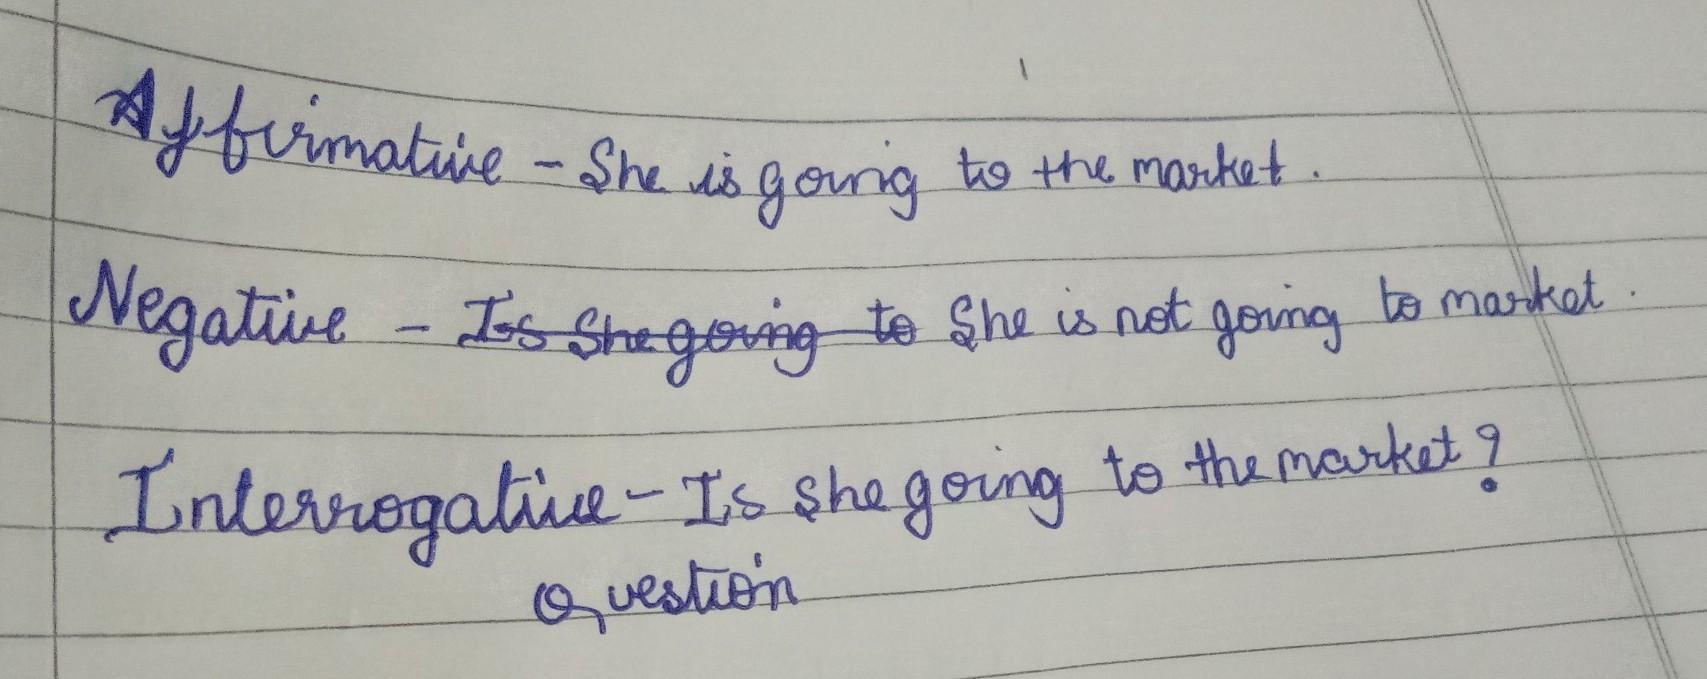 Affirmative - She is going to the market.
Negative - Is She going to She is not going to market.
Interrogative - Is she going to the market?
Question